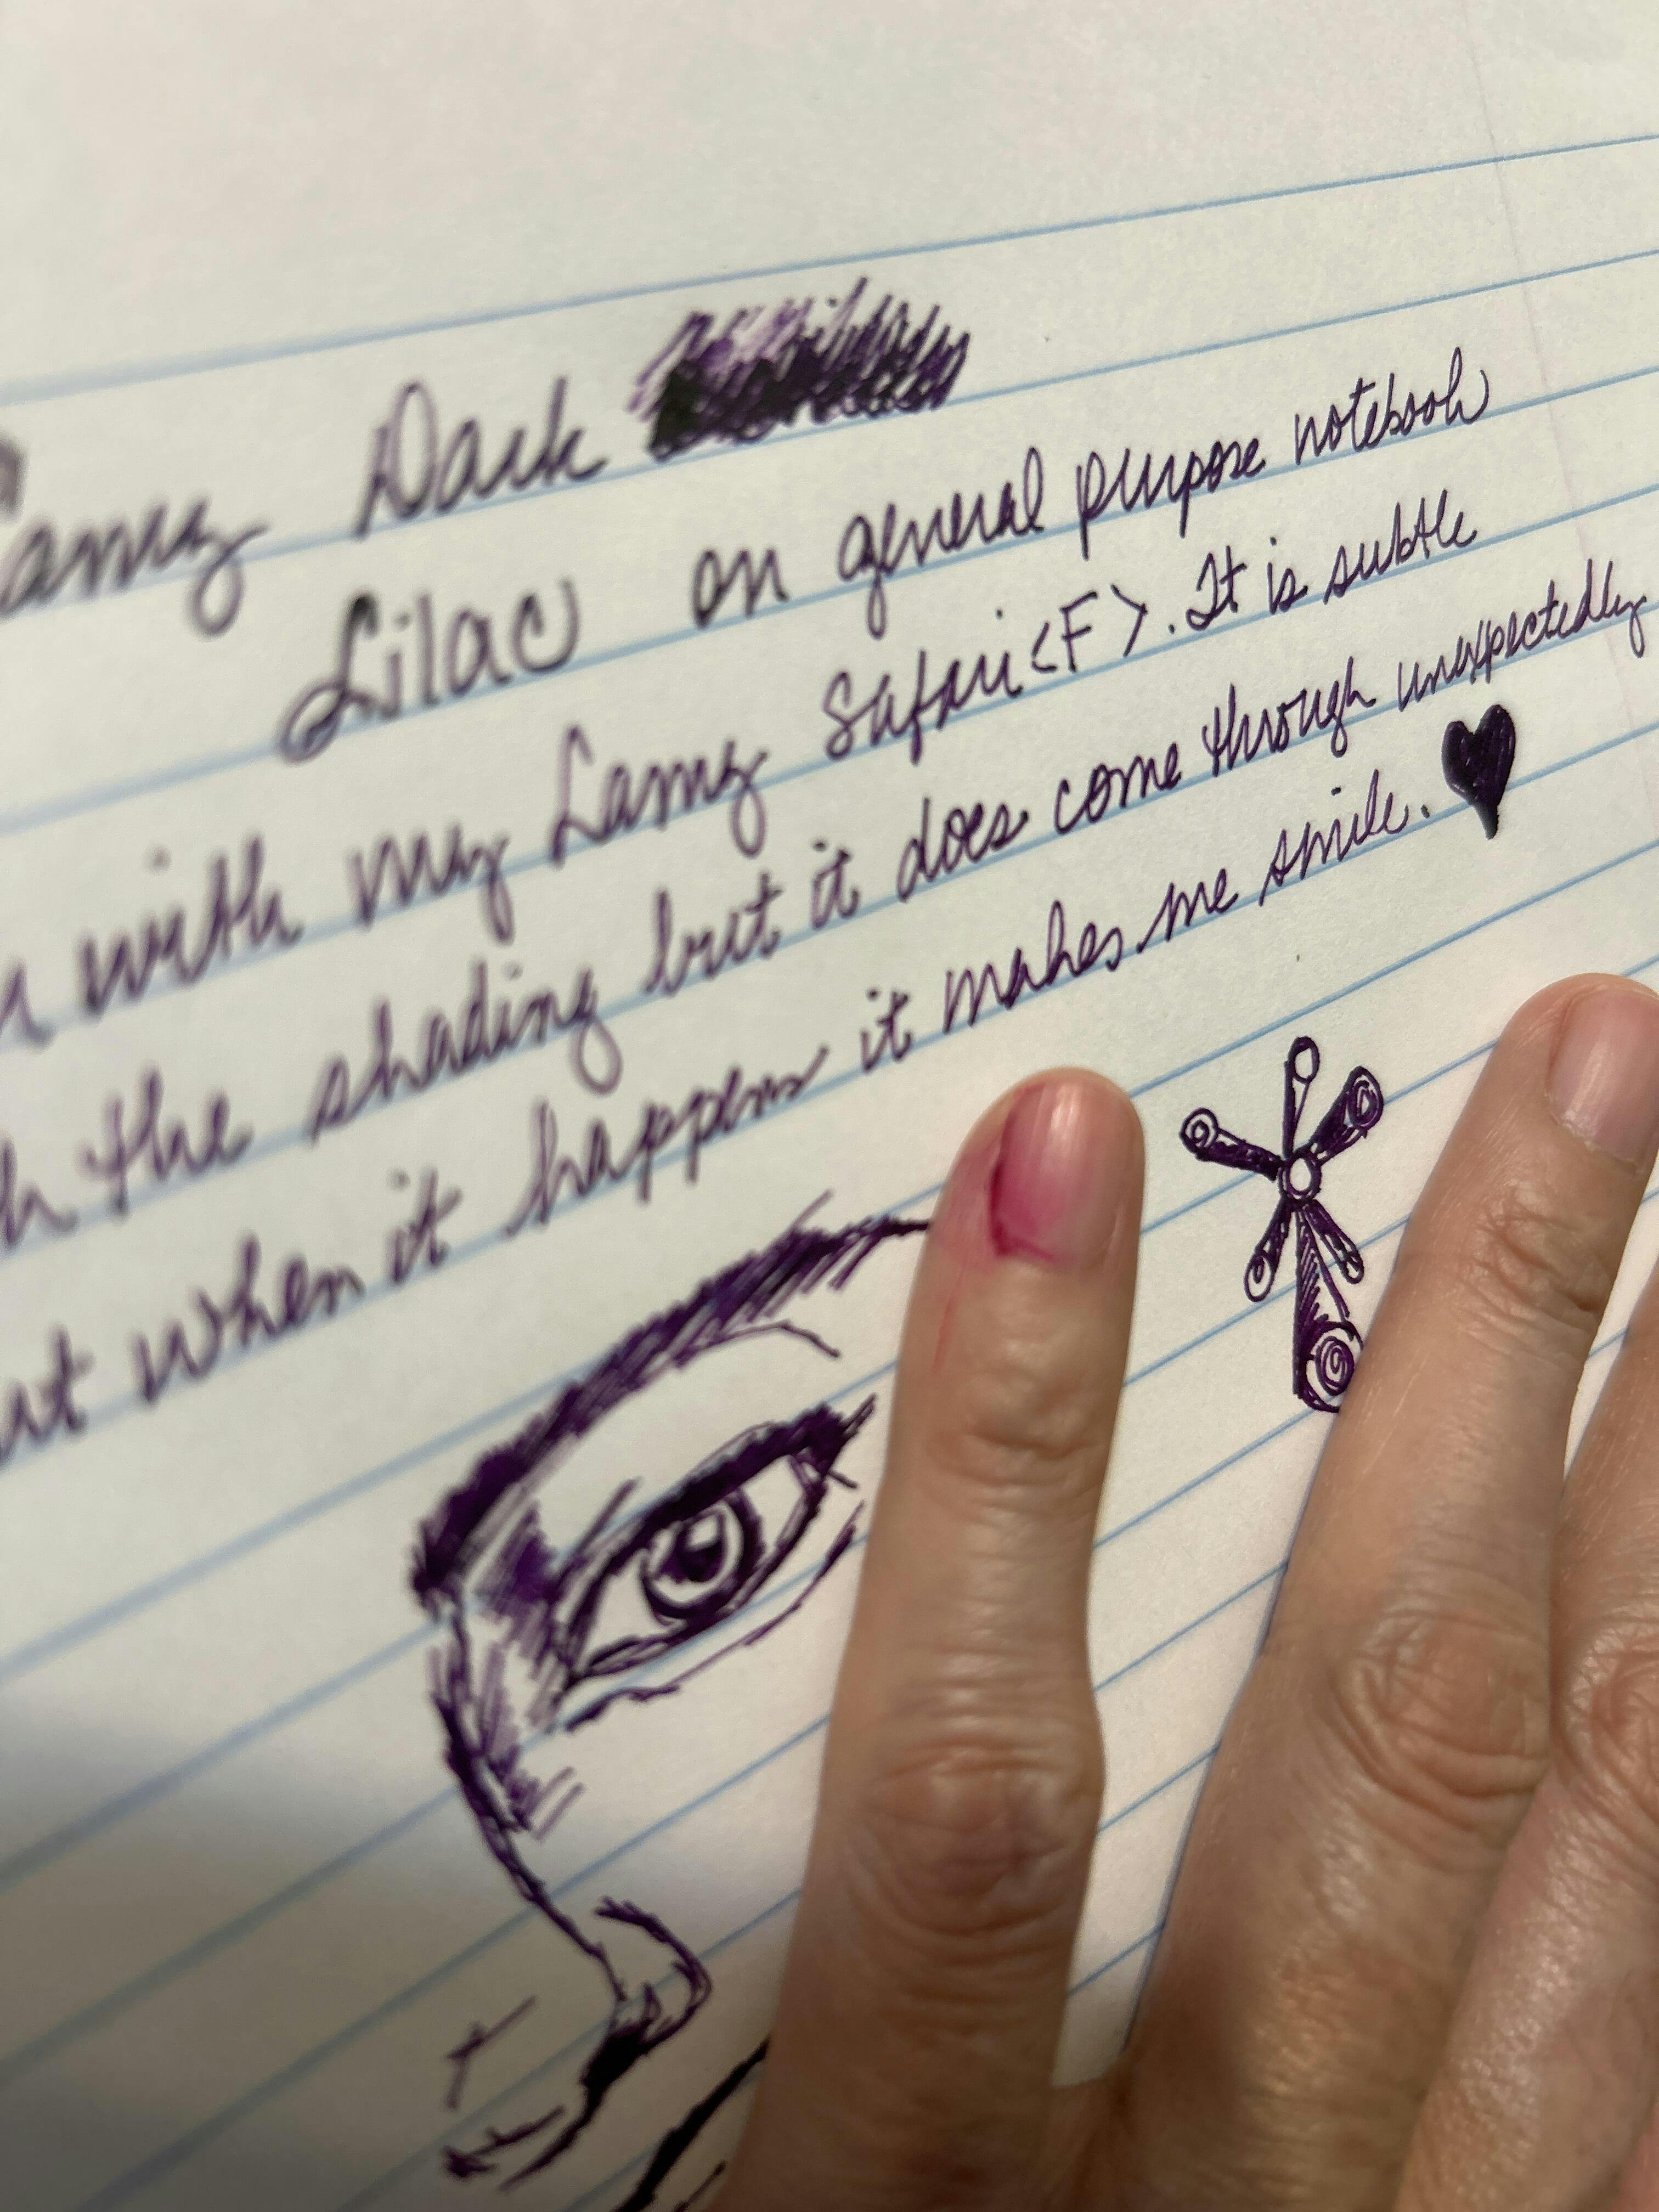 Lamy Dark
Lilac on general purpose notebook
with my Lamy Safari <F>. It is subtle
the shading but it does come through unexpectedly
when it happens it makes me smile.